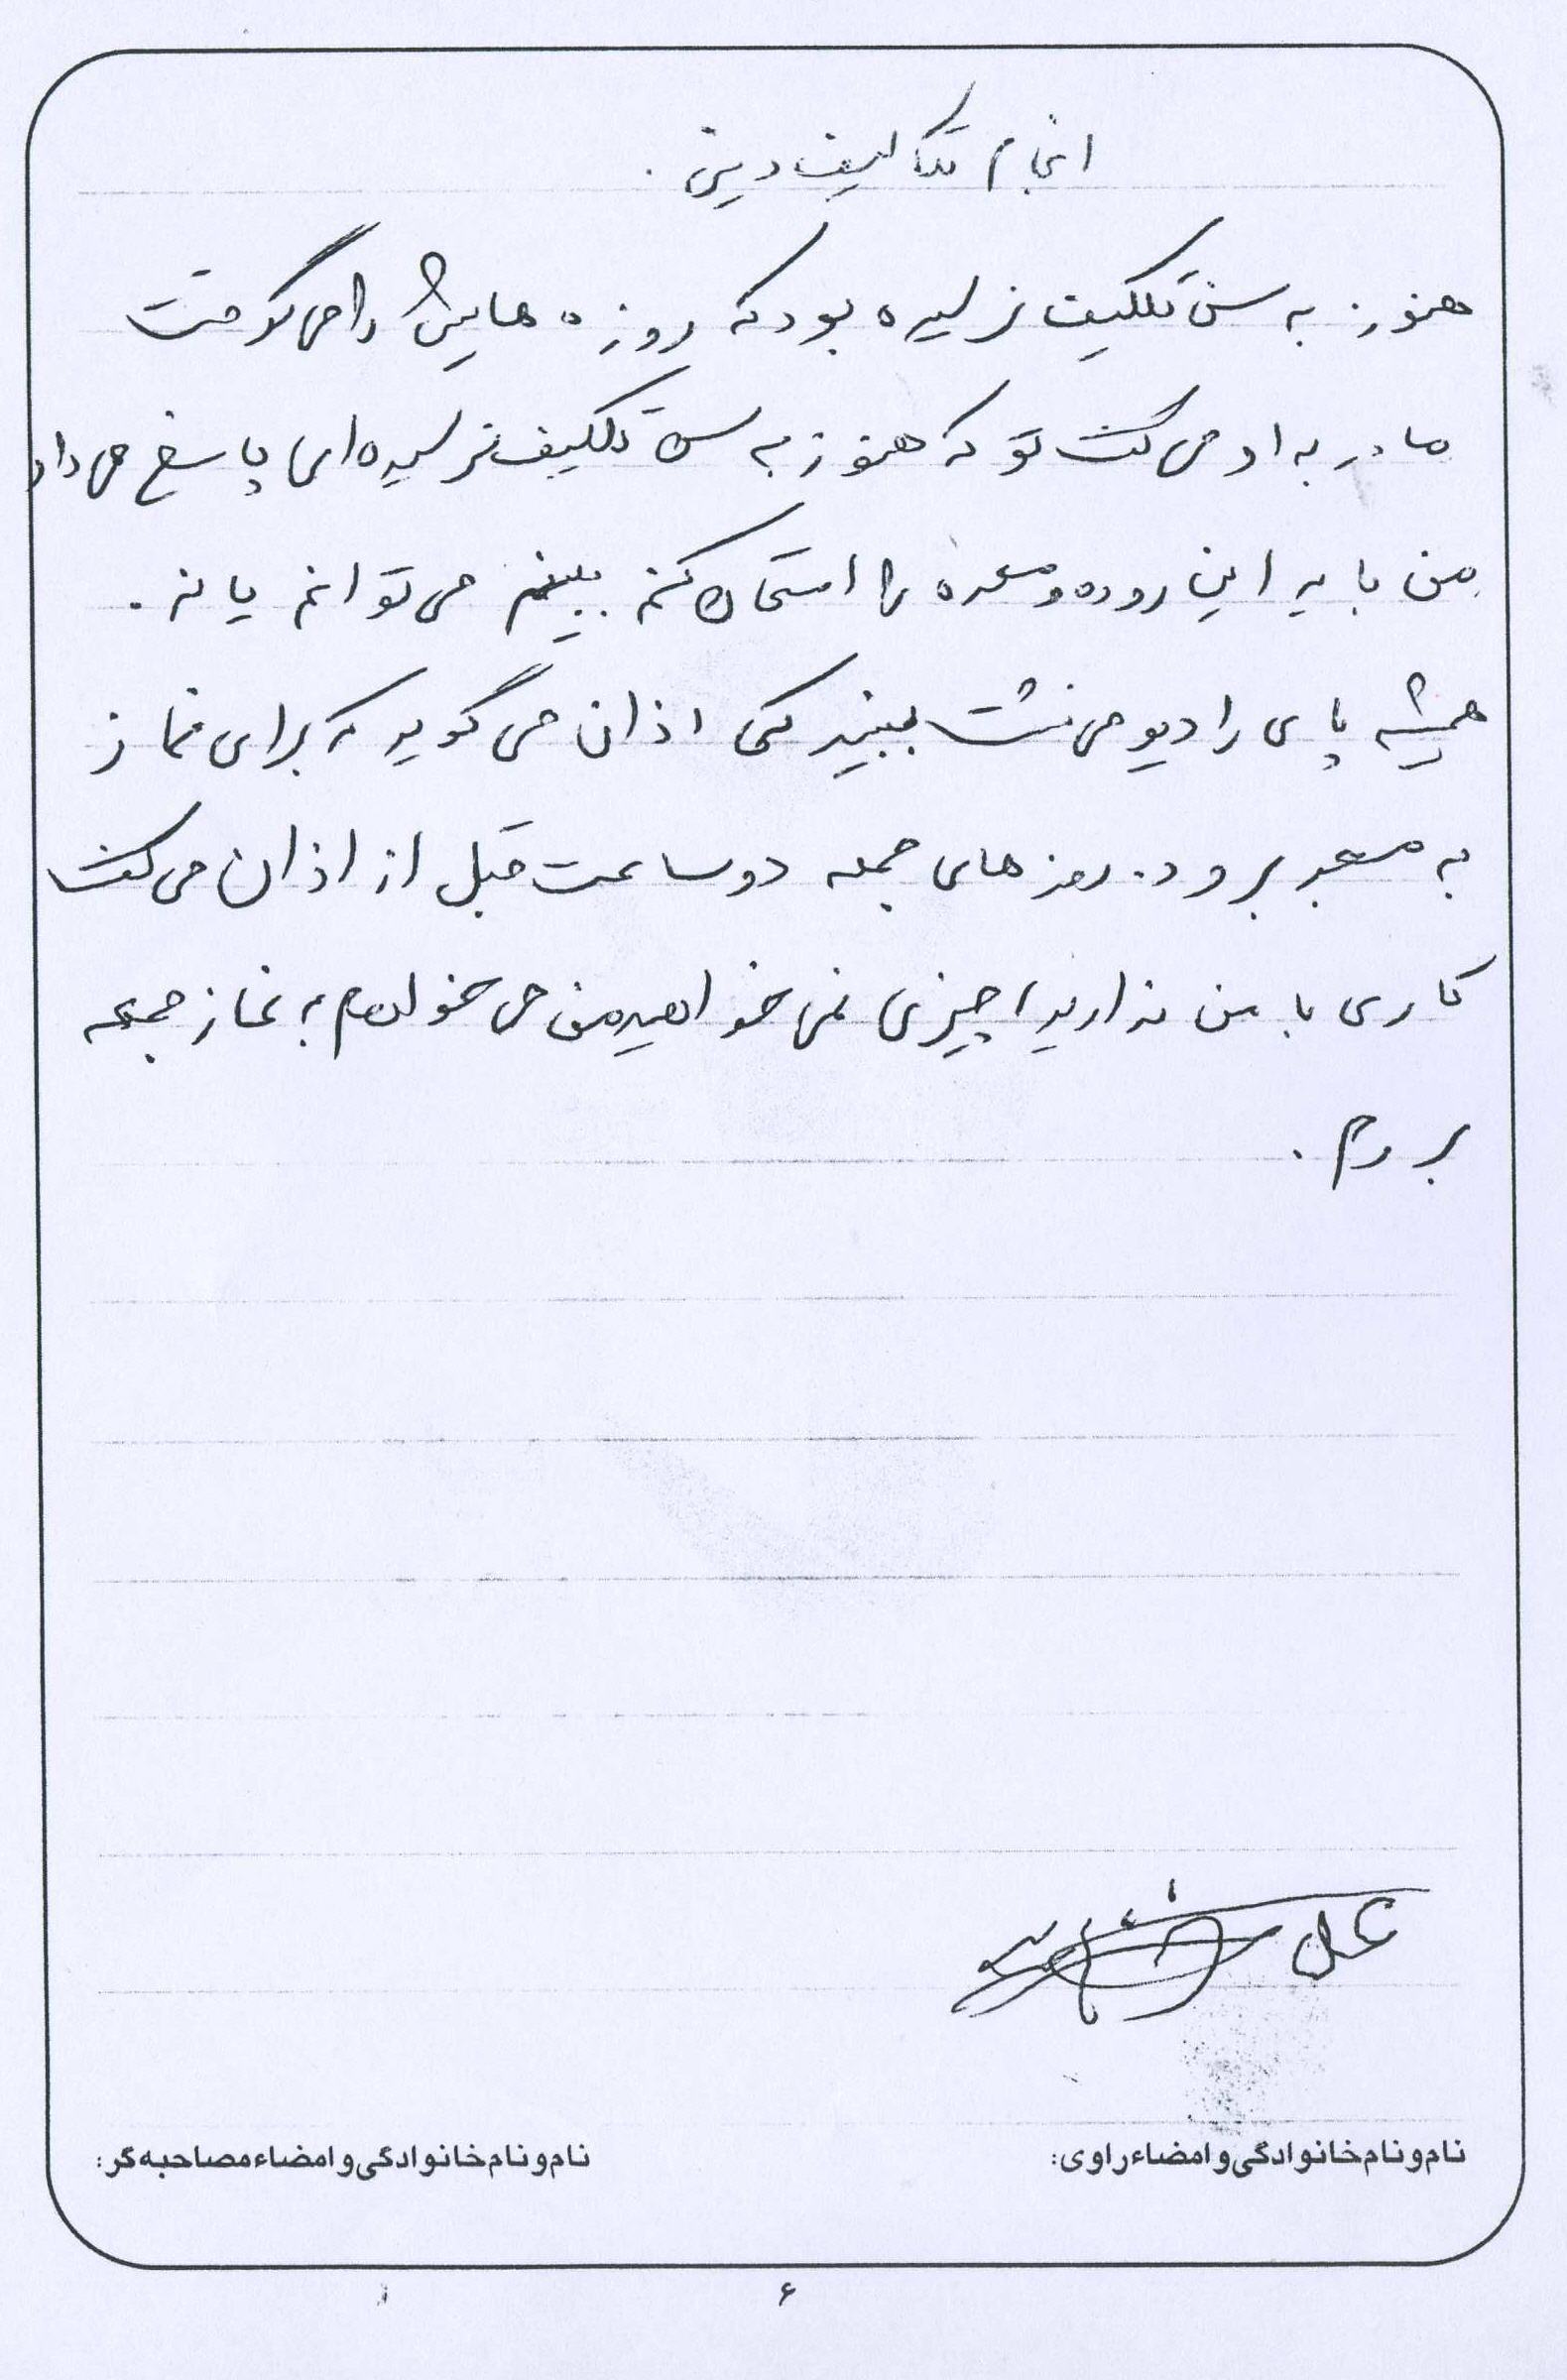 انجام تکالیف دینی.
هنوز به سن تکلیف نرسیده بود که روزه هایش را می گرفت
مادر به او می گفت تو که هنوز به سن تکلیف نرسیده ای پاسخ می داد
من باید این روده و معده را امتحان کنم ببینم می توانم یا نه.
همیشه پای رادیو می نشست ببیند کی اذان می گوید که برای نماز
به مسجد برود. روزهای جمعه دو ساعت قبل از اذان می گفت
کاری با من ندارید، چیزی نمی خواهید من می خواهم به نماز جمعه
بروم.
نام و نام خانوادگی و امضاء راوی:
نام و نام خانوادگی و امضاء مصاحبه گر:
۶